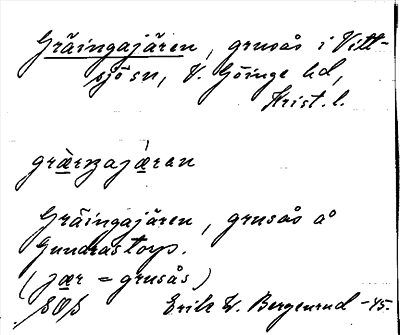 Gräingajären, grusås i Vitt-
sjö sn, V. Göinge hd,
Krist. l.
grærnzajæren
Gräingajären, grusås å
Gundrastorp.
(jær = grusås)
Erik W. Bergenrud -45.